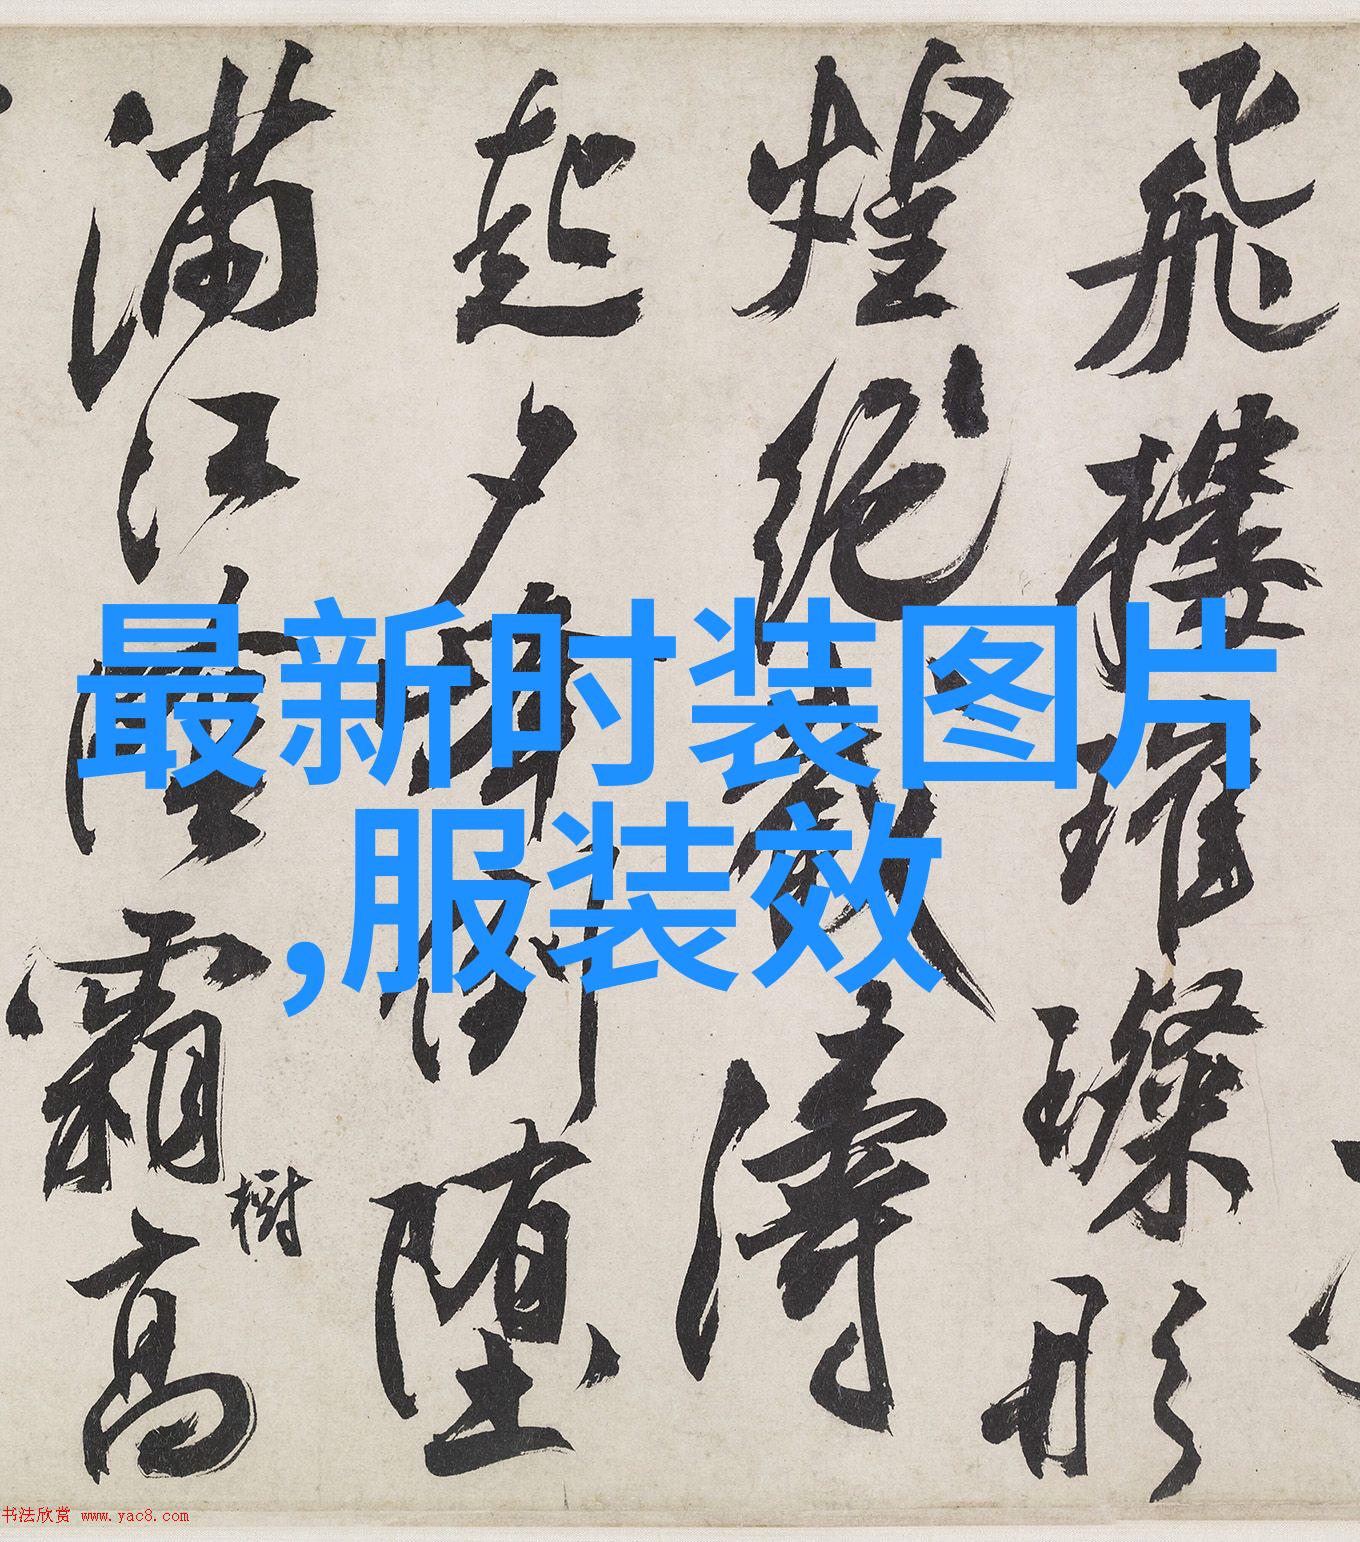 飛樓璀璨彤
煌絕濤
起夕倒堕
滿江霜高
樹
最新时装图片
,服装效
书法欣赏 www.yac8.com